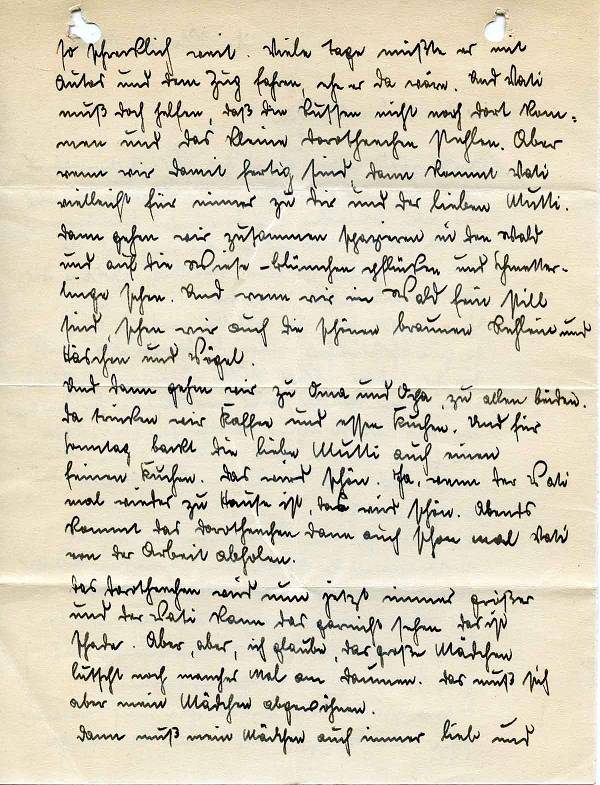 so schrecklich weit. Viele Tage müßte er mit
Autos und dem Zug fahren, ehe er da wäre. Und Vati
muß doch helfen, daß die Russen nicht noch dort kom=
men und das kleine Dorotheechen stehlen. Aber
wenn wir damit fertig sind, dann kommt Vati
vielleicht für immer zu Dir und der lieben Mutti.
Dann gehen wir zusammen spazieren in den Wald
und auf die Wiese – Blümchen pflücken und Schmetter-
linge sehen. Und wenn wir im Wald fein still
sind, sehen wir auch die schönen braunen Rehlein und
Häschen und Vögel.
Und dann gehen wir zu Oma und Opa, zu allen beiden.
Da trinken wir Kaffee und essen Kuchen. Und für
Sonntag backt die liebe Mutti auch einen
feinen Kuchen. Das wird schön. Ja, wenn der Vati
mal wieder zu Hause ist, das wird schön. Abends
kommt das Dorotheechen dann auch schon mal Vati
von der Arbeit abholen.
Das Dorotheechen wird nun jetzt immer größer
und der Vati kann das garnicht sehen das ist
schade. Aber, aber, ich glaube, das große Mädchen
lutscht noch mancher Mal am Daumen. Das muß sich
aber mein Mädchen abgewöhnen.
Dann muß mein Mädchen auch immer lieb und